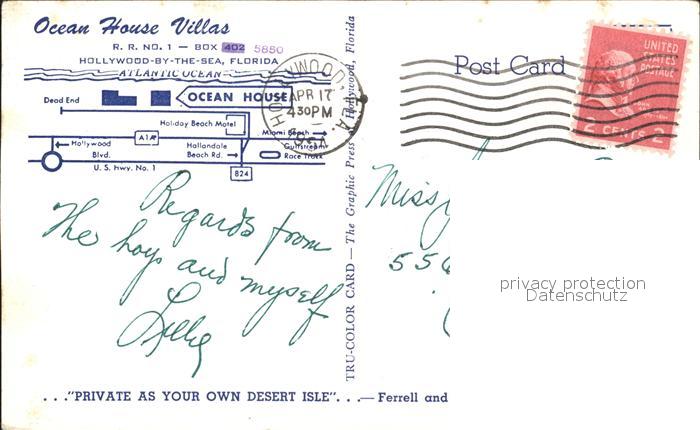 Ocean House Villas
R. R. NO. 1 — BOX 402 5850
HOLLYWOOD-BY-THE-SEA, FLORIDA
ATLANTIC OCEAN
Dead End
OCEAN HOUSE
Holiday Beach Motel
A1A
Miami Beach
Hollywood
Blvd.
Hallandale
Beach Rd.
Gulfstream
Race Track
U. S. Hwy. No. 1
824
APR 17
430PM
Regards from
the boys and myself
TRU-COLOR CARD — The Graphic Press, Hollywood, Florida
Post Card
UNITED
STATES
POSTAGE
2 CENTS 2
Miss
privacy protection
Datenschutz
. . ."PRIVATE AS YOUR OWN DESERT ISLE". . .— Ferrell and